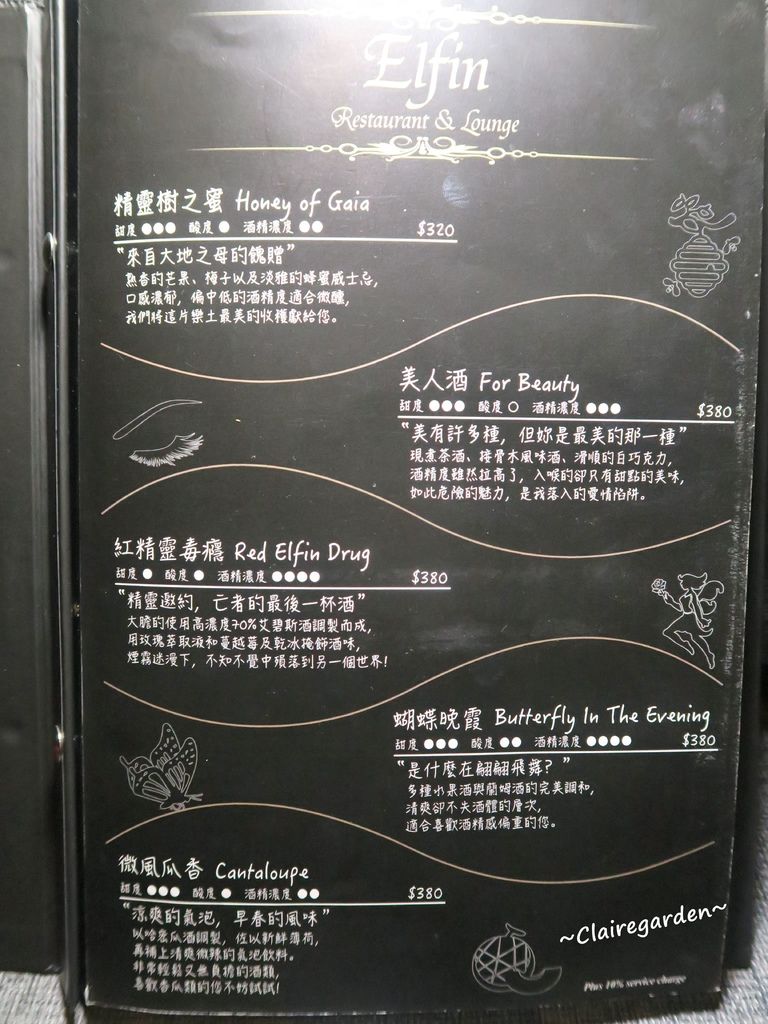 Elfin
Restaurant & Lounge
精靈樹之蜜 Honey of Gaia
甜度 ●●● 酸度 ● 酒精濃度 ●● $320
“來自大地之母的餽贈”
熟香的芒果、梅子以及淡雅的蜂蜜威士忌,
口感濃郁, 偏中低的酒精度適合微醺,
我們將這片樂土最美的收穫獻給您。
美人酒 For Beauty
甜度 ●●● 酸度 ○ 酒精濃度 ●●● $380
“美有許多種, 但妳是最美的那一種”
現煮茶酒、接骨木風味酒、滑順的白巧克力,
酒精度雖然拉高了, 入喉的卻只有甜點的美味,
如此危險的魅力, 是我落入的愛情陷阱。
紅精靈毒癮 Red Elfin Drug
甜度 ● 酸度 ● 酒精濃度 ●●●● $380
“精靈邀約, 亡者的最後一杯酒”
大膽的使用高濃度70%艾碧斯酒調製而成,
用玫瑰萃取液和蔓越莓及乾冰掩飾酒味,
煙霧迷漫下, 不知不覺中墮落到另一個世界!
蝴蝶晚霞 Butterfly In The Evening
甜度 ●●● 酸度 ●● 酒精濃度 ●●●● $380
“是什麼在翩翩飛舞? ”
多種水果酒與蘭姆酒的完美調和,
清爽卻不失酒體的層次,
適合喜歡酒精感偏重的您。
微風瓜香 Cantaloupe
甜度 ●●● 酸度 ● 酒精濃度 ●● $380
“涼爽的氣泡, 早春的風味”
以哈密瓜酒調製, 佐以新鮮薄荷,
再補上清爽微辣的氣泡飲料。
非常輕鬆又無負擔的酒類,
喜歡香瓜類的您不妨試試!
~Clairegarden~
Plus 10% service charge